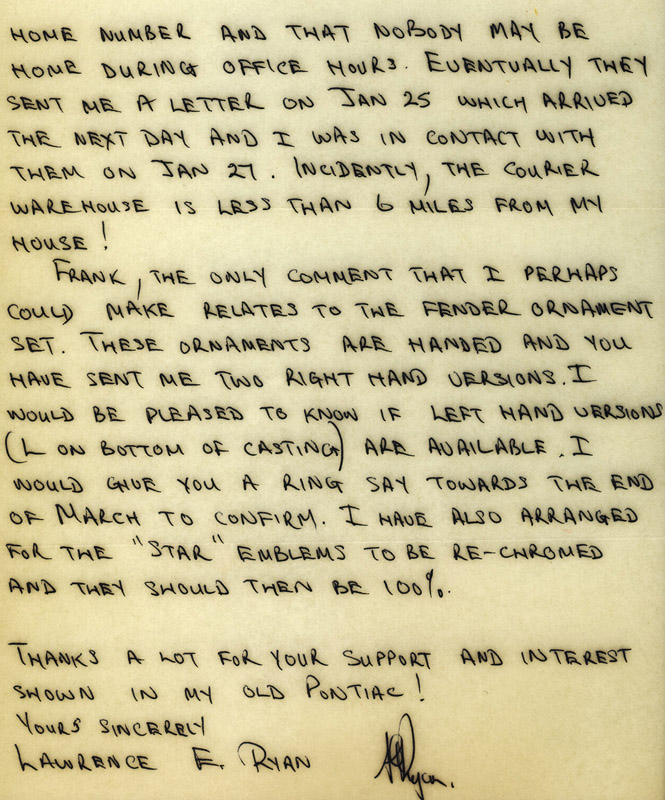 HOME NUMBER AND THAT NOBODY MAY BE
HOME DURING OFFICE HOURS. EVENTUALLY THEY
SENT ME A LETTER ON JAN 25 WHICH ARRIVED
THE NEXT DAY AND I WAS IN CONTACT WITH
THEM ON JAN 27. INCIDENTLY, THE COURIER
WAREHOUSE IS LESS THAN 6 MILES FROM MY
HOUSE!
FRANK, THE ONLY COMMENT THAT I PERHAPS
COULD MAKE RELATES TO THE FENDER ORNAMENT
SET. THESE ORNAMENTS ARE HANDED AND YOU
HAVE SENT ME TWO RIGHT HAND VERSIONS. I
WOULD BE PLEASED TO KNOW IF LEFT HAND VERSIONS
(L ON BOTTOM OF CASTING) ARE AVAILABLE. I
WOULD GIVE YOU A RING SAY TOWARDS THE END
OF MARCH TO CONFIRM. I HAVE ALSO ARRANGED
FOR THE "STAR" EMBLEMS TO BE RE-CHROMED
AND THEY SHOULD THEN BE 100%.
THANKS A LOT FOR YOUR SUPPORT AND INTEREST
SHOWN IN MY OLD PONTIAC!
YOURS SINCERELY
LAWRENCE E. RYAN Ryan.